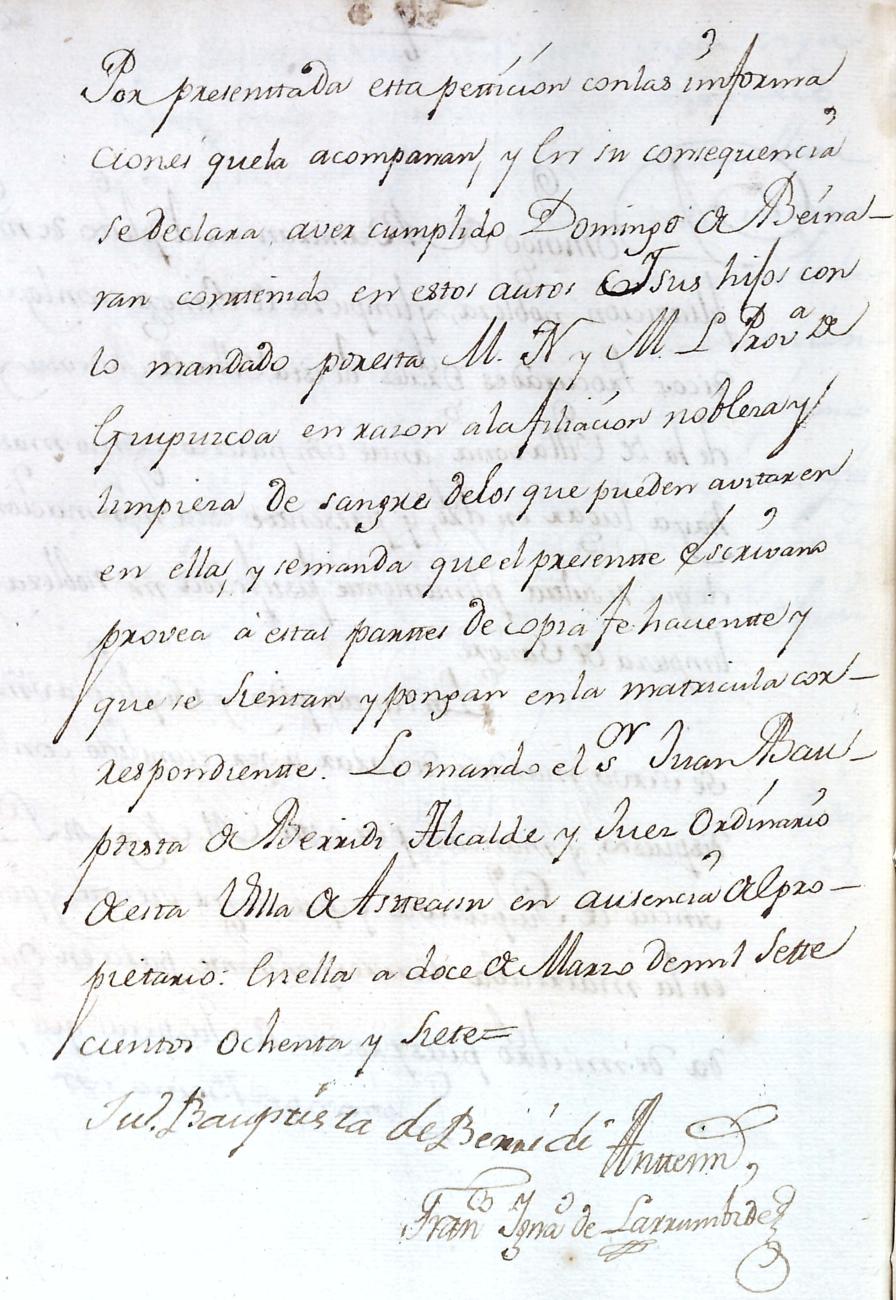 Por presenttada esta pettición con las informa
ciones que la acompañan, y En su consequencia
se declara aver cumplido Domingo de Beina-
ran conttenido en estos autos Y sus hijos con
lo mandado por esta M. N y M. L Prov.a de
Guipuzcoa en razon a la filiación nobleza y
limpieza de sangre de los que pueden avitar en
en ella, y se manda que el presentte Escrivano
provea á estas parttes de copia fe hacientte y
que se Sientan y pongan en la matricula cor-
respondientte. Lo mando el s.or Juan Bau-
ptista de Berridi Alcalde y Juez Ordinario
de esta Villa de Asteasu en ausencia del pro-
pietario: En ella a doce de Marzo de mil Sette
cientos ochenta y Siete=
Ju.n Bauptista de Berridi Antte mi
Fran.co Igna.o de Larrumbide